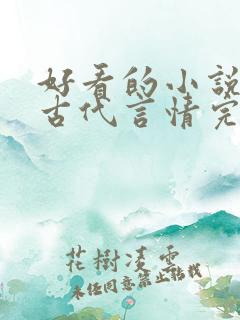 好看的小說
古代言情完
花樹凌雲
未经同意禁止转载